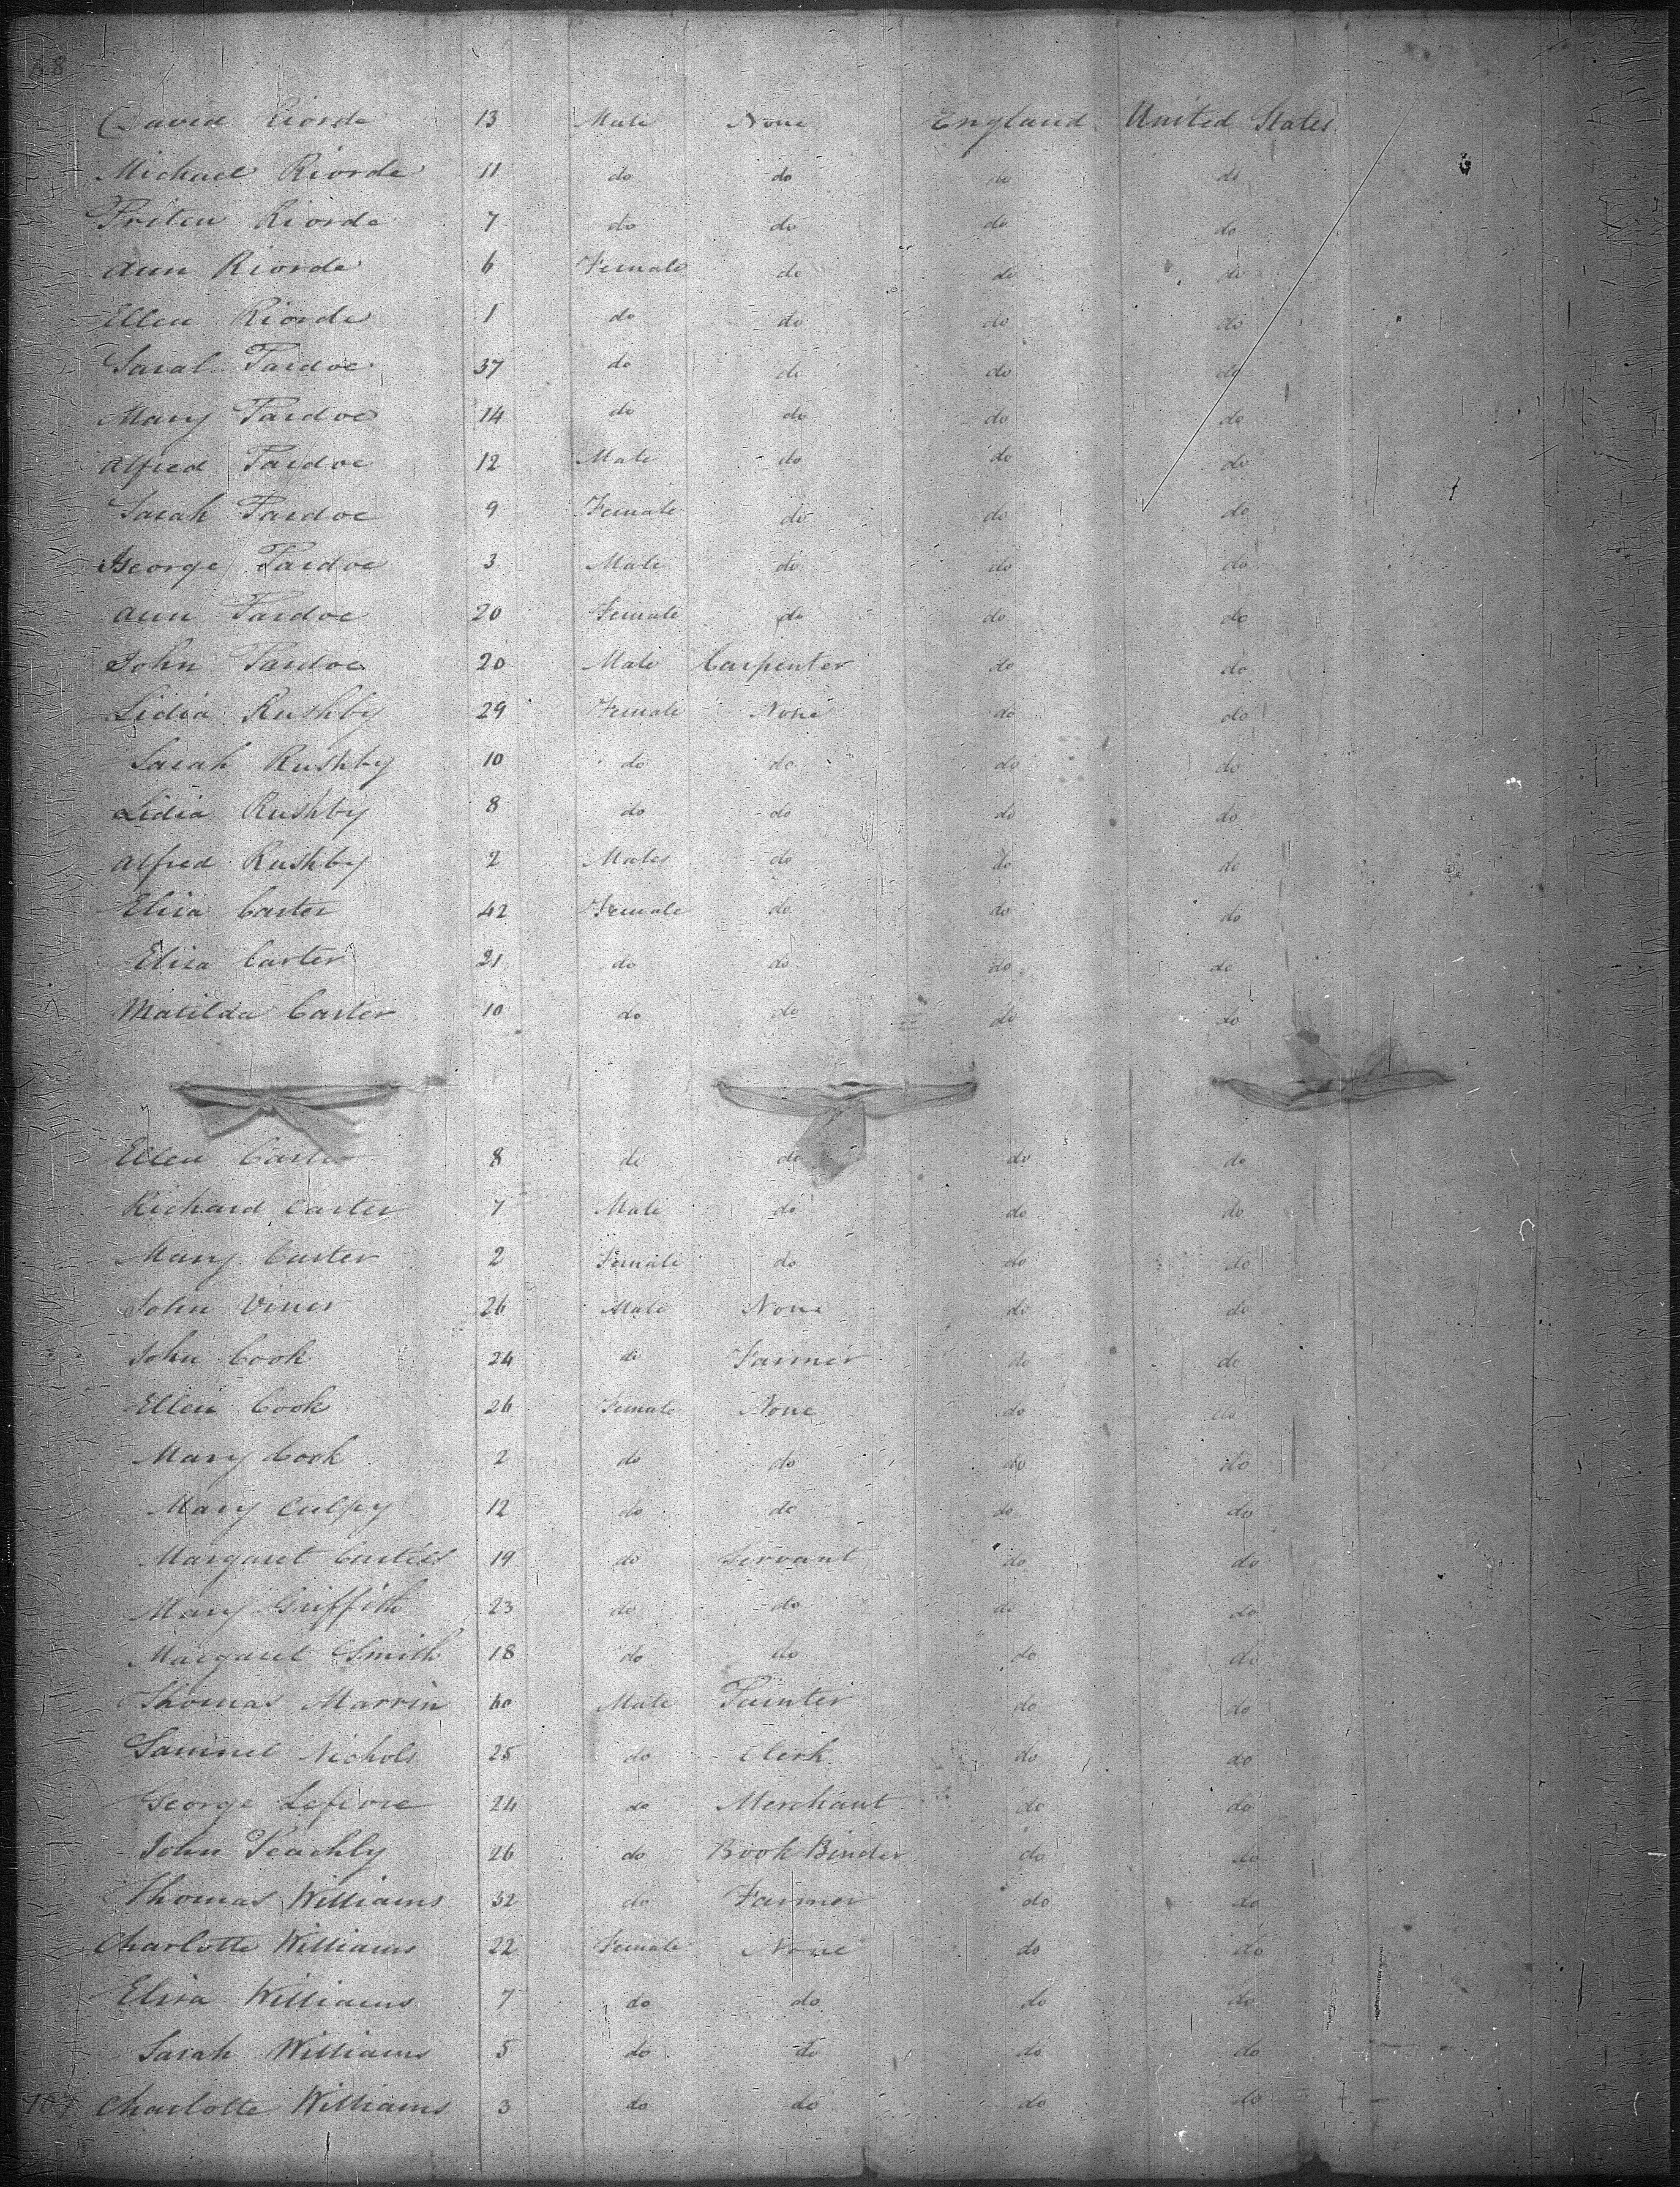 68
David Riorde 13 Male None England United States
Michael Riorde 11 do do do do
Riorde 7 do do do do
Ann Riorde 6 Female do do do
Ellen Riorde 1 do do do do
Sarah Pardoe 37 do do do do
Mary Pardoe 14 do do do do
Alfred Pardoe 12 Male do do do
Sarah Pardoe 9 Female do do do
George Pardoe 3 Male do do do
Ann Pardoe 20 Female do do do
John Pardoe 20 Male Carpenter do do
Lidia Rushby 29 Female None do do
Sarah Rushby 10 do do do do
Lidia Rushby 8 do do do do
Alfred Rushby 2 Male do do do
Eliza Carter 42 Female do do do
Eliza Carter 21 do do do do
Matilda Carter 10 do do do do
Ellen Carter 8 do do do do
Richard Carter 7 Male do do do
Mary Carter 2 Female do do do
John Viner 26 Male None do do
John Cook 24 do Farmer do do
Ellen Cook 26 Female None do do
Mary Cook 2 do do do do
Mary Culpy 12 do do do do
Margaret 19 do Servant do do
Mary Griffith 23 do do do do
Margaret Smith 18 do do do do
Thomas Marvin 60 Male Painter do do
Samuel Nichols 25 do Clerk do do
George Lefevre 24 do Merchant do do
John Peachly 26 do Book Binder do do
Thomas Williams 32 do Farmer do do
Charlotte Williams 22 Female None do do
Eliza Williams 7 do do do do
Sarah Williams 5 do do do do
107 Charlotte Williams 3 do do do do